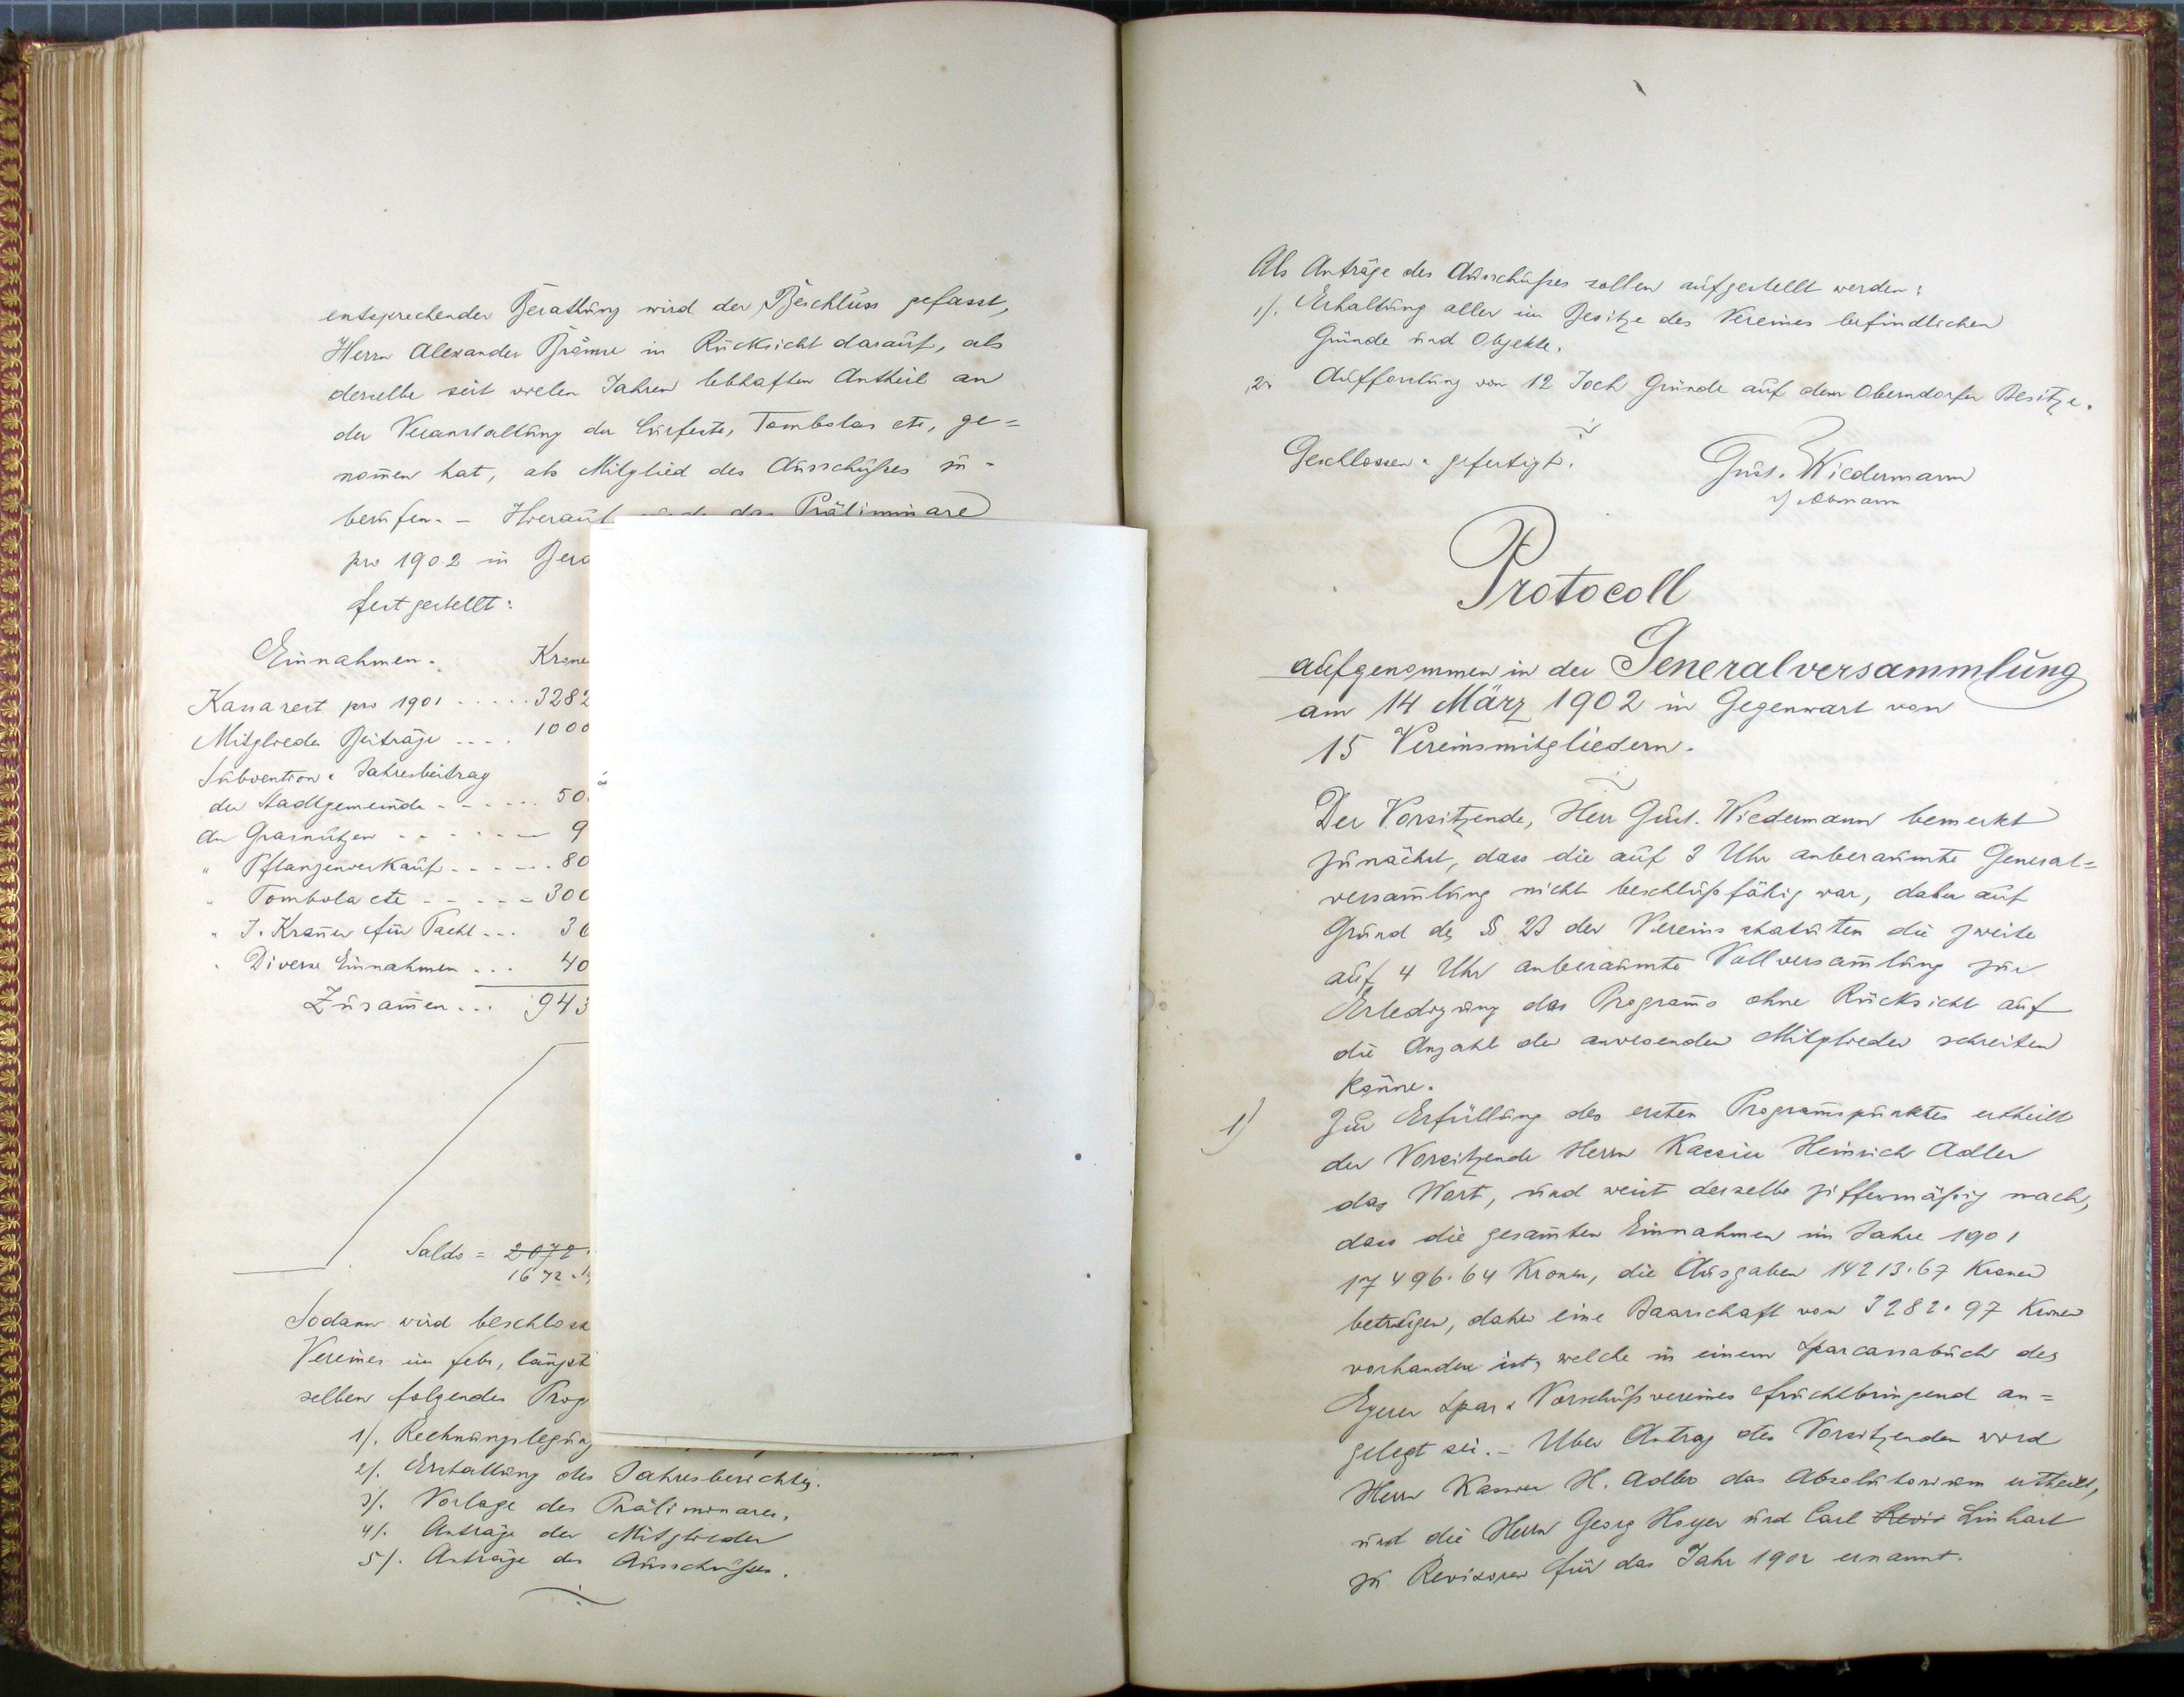 entsprechender Berathung wird der Beschluss gefasst,
Herrn Alexander in Rücksicht darauf, als
derselbe seit vielen Jahren lebhaften Antheil an
der Veranstaltung der Curfeste, Tombolas etc, ge=
nom̄en hat, als Mitglied des Ausschußes zu-
berufen. - Hierauf wurde das Präliminare
pro 1902 in Bera
festgestellt:
Einnahmen. Krone
Kassarest pro 1901 ..... 3282
Mitglieder Beiträge .... 1000
Subvention & Jahresbeitrag
der Stadtgemeinde ...... 50
An Grasnutzen ...... 9
" Pflanzenverkauf ...... 80
" Tombola etc ..... 300
" J. Kram̄er für Pacht ... 36
" Diverse Einnahmen ... 40
Zusam̄en ... 943
Saldo = 2072
1672.
Sodann wird beschloss
Vereines im febr, längst
selben folgendes Prog
1/. Rechnungslegung
2/. Erstattung des Jahresberichtes.
3/. Vorlage des Präliminares.
4/. Anträge der Mitglieder
5/. Anträge des Ausschußes.
Als Anträge des Ausschußes sollen aufgestellt werden:
1/. Erhaltung aller im Besitze des Vereines befindlichen
Gründe und Objekte.
2. Aufforstung von 12 Joch Gründe auf dem Oberndorfer Besitze.
Geschlossen & gefertigt.
Gust. Wiedermann
Obmann
Protocoll
aufgenommen in der Generalversammlung
am 14 März 1902 in Gegenwart von
15 Vereinsmitgliedern.
Der Vorsitzende, Herr Gust. Wiedermann bemerkt
zunächst, dass die auf 3 Uhr anberaumte General=
versam̄lung nicht beschlußfähig war, daher auf
Grund des § 23 der Vereins statuten die zweite
auf 4 Uhr anberaumte Vollversam̄lung zur
Erledigung des Program̄s ohne Rücksicht auf
die Anzahl der anwesenden Mitglieder schreiten
könne.
1) Zur Erfüllung des ersten Program̄spunktes ertheilt
der Vorsitzende Herrn Kassier Heinrich Adler
das Wort, und weist derselbe ziffernmäßig nach,
dass die gesam̄ten Einnahmen im Jahre 1901
17496.64 Kronen, die Ausgaben 14213.67 Kronen
betrugen, daher eine Baarschaft von 3282.97 Kronen
vorhanden ist, welche in einem Sparcassabuch des
Egerer Spar & Vorschußvereines fruchtbringend an=
gelegt sei. - Über Antrag des Vorsitzenden wird
Herrn Kassier H. Adler das Absolutorium ertheilt,
und die Herrn Georg Hoyer und Carl Revis Linhart
zu Revisoren für das Jahr 1902 ernannt.